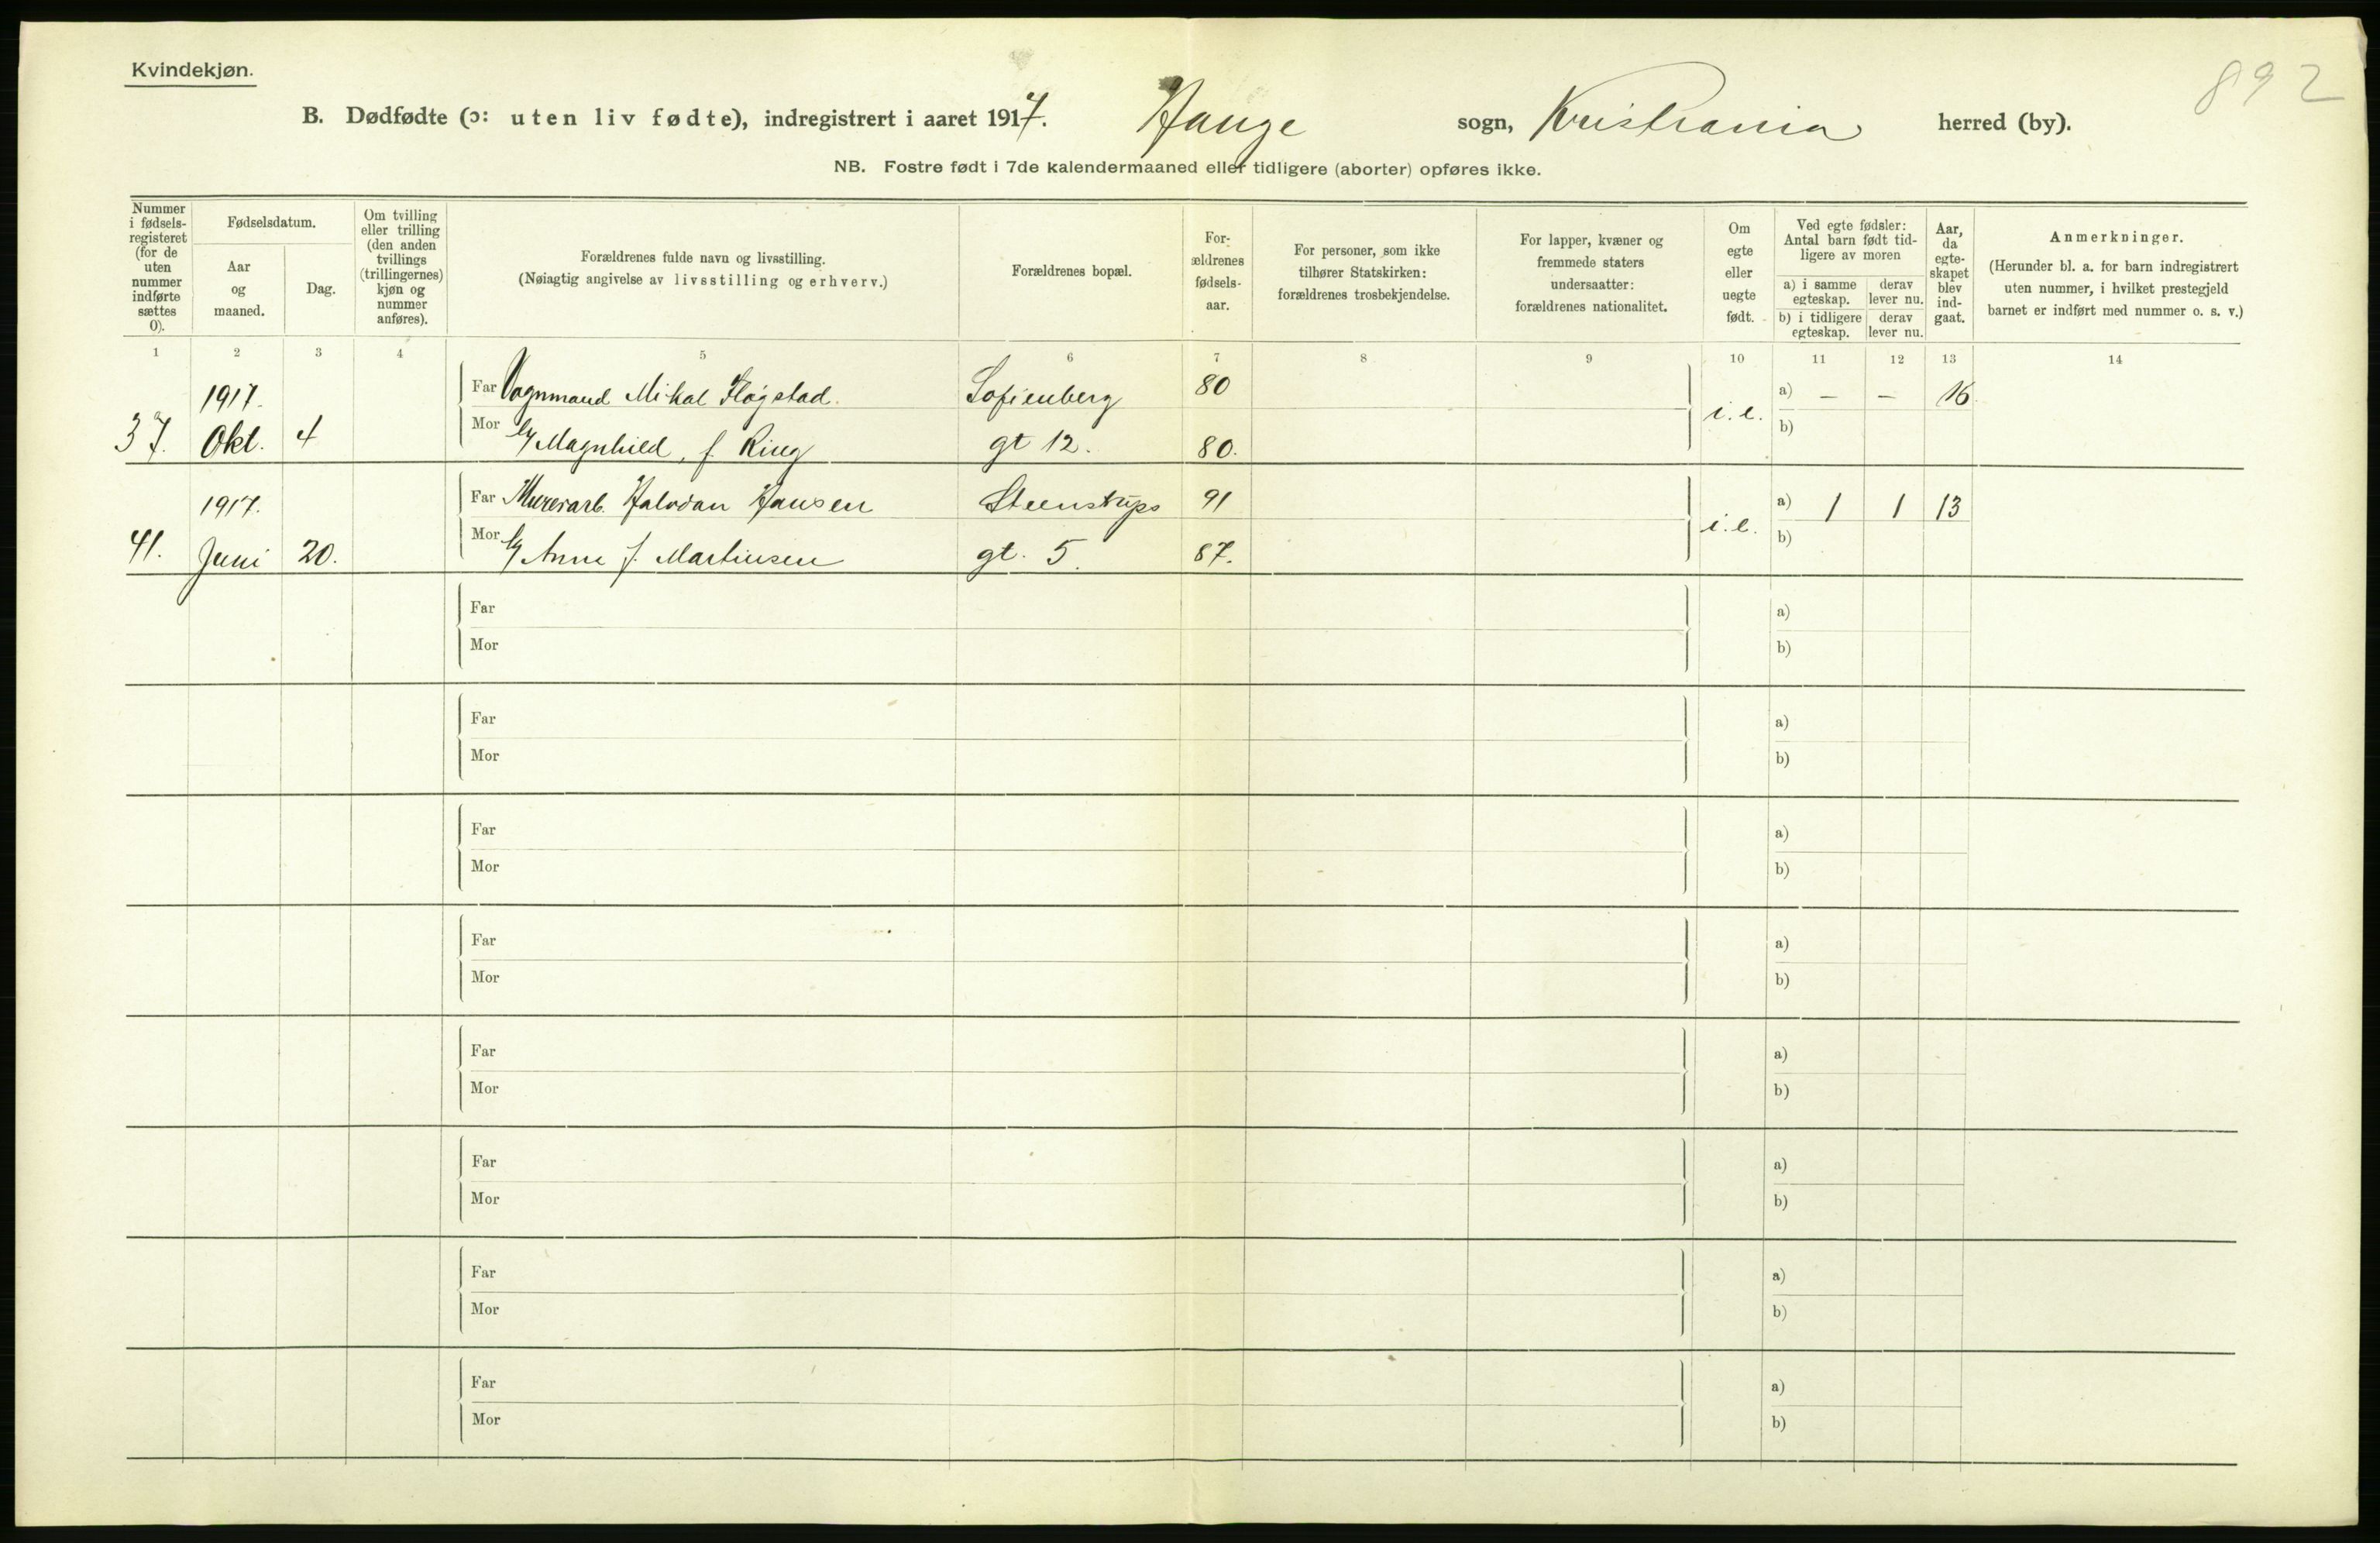 Kvindekjøn.
892
B. Dødfødte (ɔ: uten liv fødte), indregistrert i aaret 1917. Hauge sogn, Kristiania herred (by).
NB. Fostre født i 7de kalendermaaned eller tidligere (aborter) opføres ikke.
Nummer i fødsels-registeret (for de uten nummer indførte sættes 0).
Fødselsdatum.
Aar og maaned.
Dag.
Om tvilling eller trilling (den anden tvillings (trillingernes) kjøn og nummer anføres).
Forældrenes fulde navn og livsstilling.
(Nøiagtig angivelse av livsstilling og erhverv.)
Forældrenes bopæl.
For-ældrenes fødsels-aar.
For personer, som ikke tilhører Statskirken: forældrenes trosbekjendelse.
For lapper, kvæner og fremmede staters undersaatter: forældrenes nationalitet.
Om egte eller uegte født.
Ved egte fødsler: Antal barn født tid-ligere av moren
a) i samme egteskap.
derav lever nu.
b) i tidligere egteskap.
derav lever nu.
Aar, da egte-skapet blev ind-gaat.
Anmerkninger.
(Herunder bl. a. for barn indregistrert uten nummer, i hvilket prestegjeld barnet er indført med nummer o. s. v.)
1 2 3 4 5 6 7 8 9 10 11 12 13 14
1917. Far Vognmand Mikal Fløgstad. Sofienberg 80 a) — — 16.
37. Okt. 4 Mor Magnhild, f. Ring gt 12. 80. i. e. b)
1917. Far Murerarb. Halvdan Hansen Steenstrups 91 a) 1 1 13
41. Juni 20. Mor Anne f. Martinsen gt. 5. 87. i. e. b)
Far a)
Mor b)
Far a)
Mor b)
Far a)
Mor b)
Far a)
Mor b)
Far a)
Mor b)
Far a)
Mor b)
Far a)
Mor b)
Far a)
Mor b)